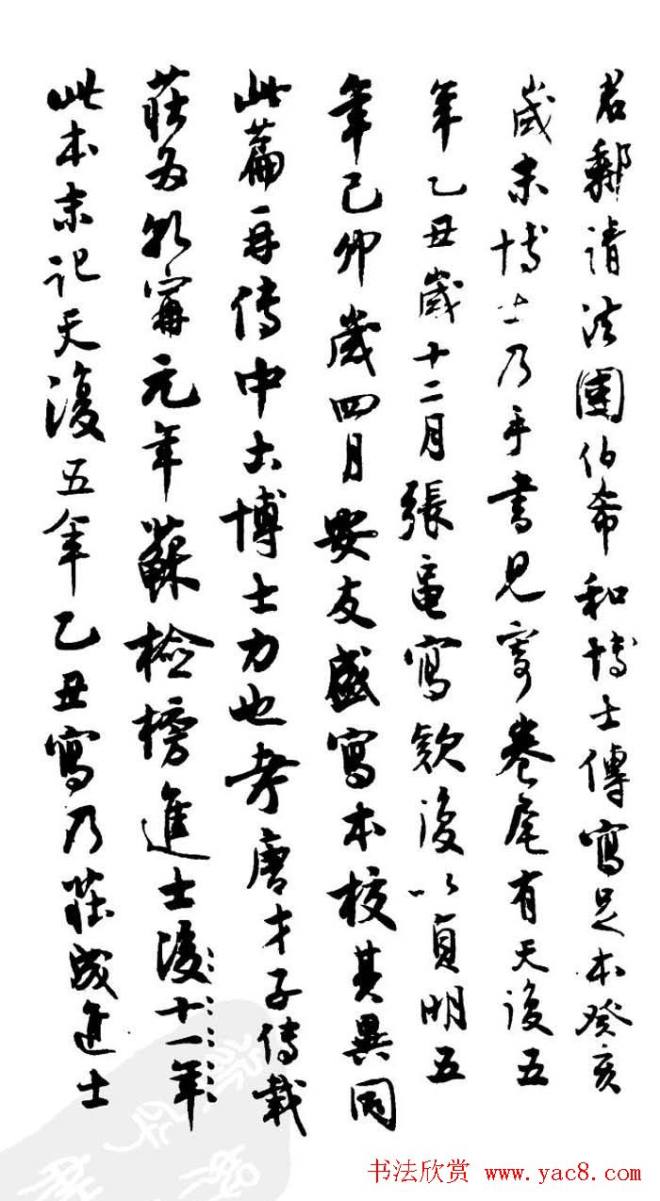 君郵請法国伯希和博士傳寫足本癸亥
歲末博士乃手書見寄卷尾有天復五
年乙丑歲十二月張龜寫款後以貞明五
年己卯歲四月安友盛寫本校其異同
此篇再傳中土博士力也考唐才子傳載
莊乾寧元年蘇檢榜進士後十一年
此本末記天復五年乙丑寫乃莊成進士
书法欣赏 www.yac8.com